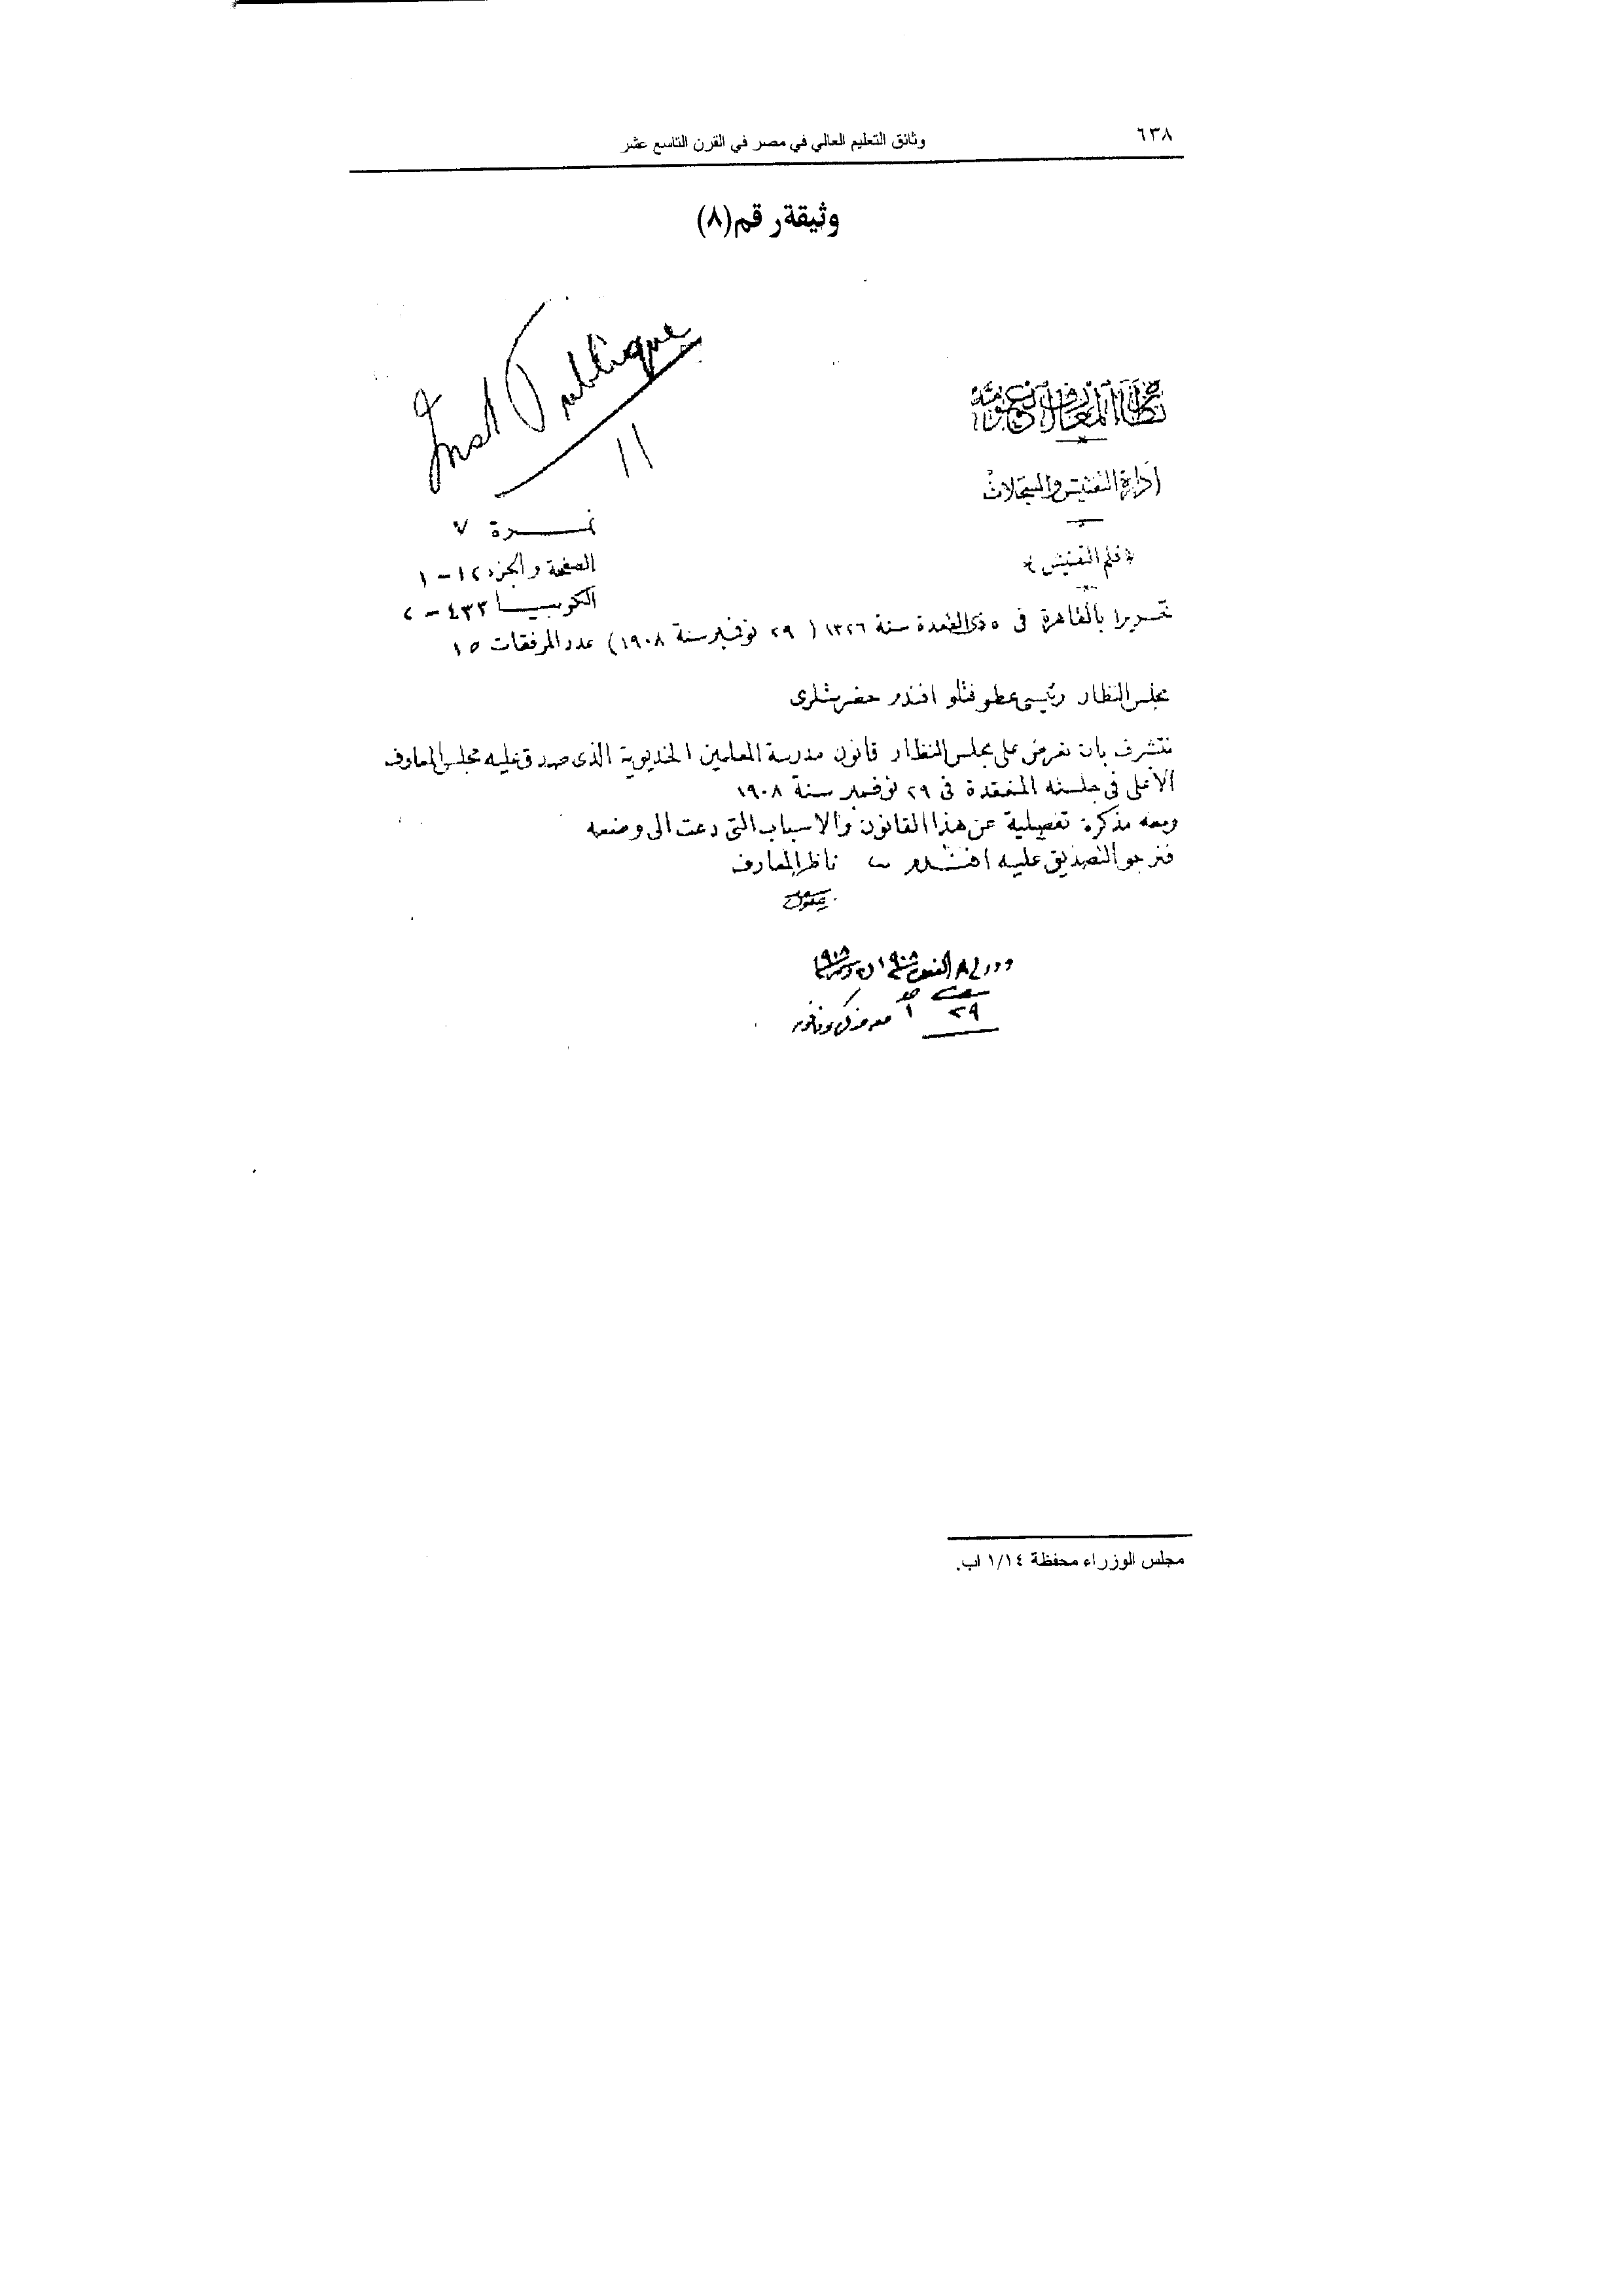 ٦٣٨
وثائق التعليم العالي في مصر في القرن التاسع عشر
وثيقة رقم (٨)
Inst Publique
١١
نظارة المعارف العمومية
إدارة التفتيش والسجلات
قلم التفتيش
نمرة ٧
الصفحة والجزء ١٢ - ١
الكوبيا ٤٣٣ - ٢
تحريرا بالقاهرة فى ٥ ذى القعدة سنة ١٣٢٦ ( ٢٩ نوفمبر سنة ١٩٠٨) عدد المرفقات ١٥
مجلس النظار رئيسى عطوفتلو افندم حضرتلرى
نتشرف بان نعرض على مجلس النظار قانون مدرسة المعلمين الخديوية الذى صدق عليه مجلس المعارف
الأعلى فى جلسته المنعقدة فى ٢٩ نوفمبر سنة ١٩٠٨
ومعه مذكرة تفصيلية عن هذا القانون والاسباب التى دعت الى وضعه
فنرجو التصديق عليه افندم ناظر المعارف
٢٩
١
مجلس الوزراء محفظة ١/١٤ اب.